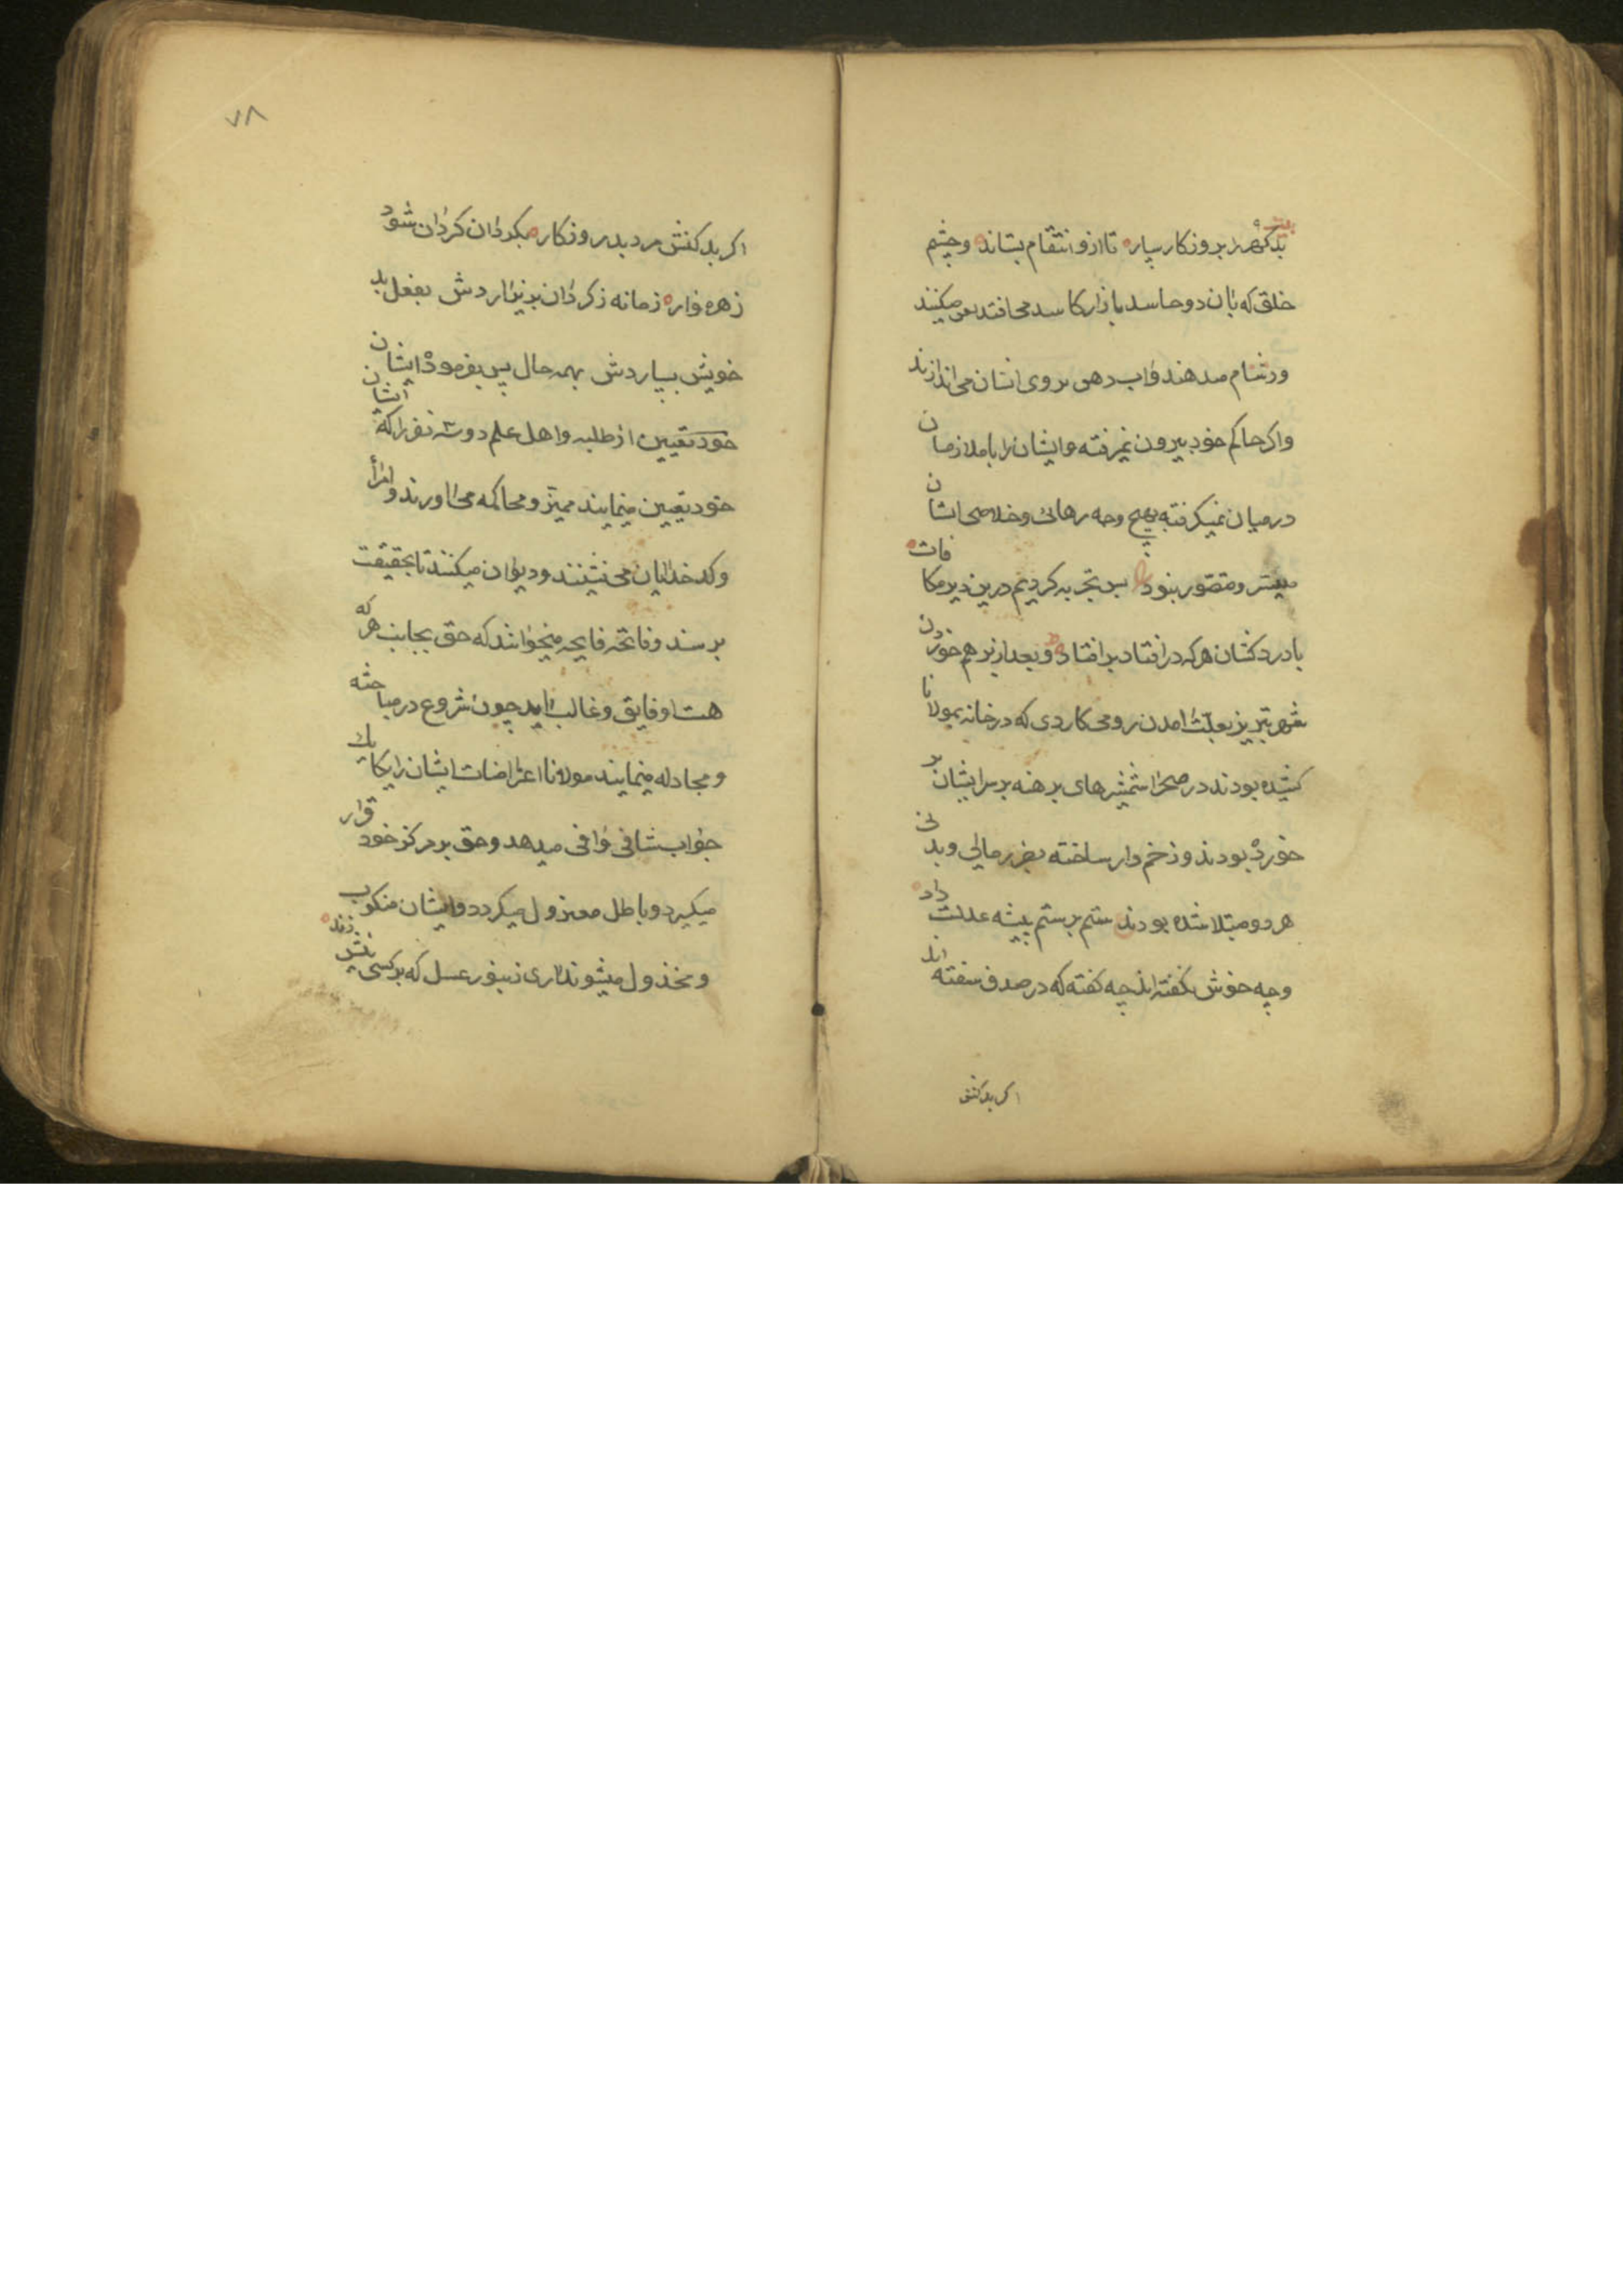 بیت
بدکهر را بروزکار سپار تا ازو انتقام بستاند وچشم
خلق که بان دو حاسد بازار کاسد می افتد لعن میکنند
ودشنام میدهند واب دهن بر وی ایشان می اندازند
واکر حاکم خود بیرون نمیرفته وایشان را با ملازمان
درمیان نمیکرفته بهیچ وجه رهائی وخلاصی ایشان
میسر ومتصور نبود بس تجربه کردیم درین دیر مکافات
با درد کشان هر که در افتاد بر افتاد وبعد از بر هم خوردن
شهر تبریز بعلت امدن رومی کاردی که در خانه بمولانا
کشیده بودند در صحرا شمشیرهای برهنه بر سر ایشان بر
خورده بودند وزخم دار ساخته بضرر مالی وبدنی
هر دو مبتلا شده بودند ستم بر ستم پیشه عدلست داد
وچه خوش کفته اند چه کفته که در صدف سفته اند
اکر بدکنش
۷۸
اکر بدکنش مرد بد روزکار بکردان کردان شود
زهره وار زمانه ز کردان بزیر اردش بفعل بد
خویش بسپاردش بهمه حال پس بفرموده ایشان
خود تعیین از طلبه واهل علم دو سه نفر را که ایشان
خود تعیین مینمایند ممیز ومحاکمه می اورند وامرا
وکدخدایان می نشینند ودیوان میکنند تا بحقیقت
برسند وفاتحه فایحه میخوانند که حق بجانب هر که
هست او فایق وغالب اید چون شروع در مباحثه
ومجادله مینمایند مولانا اعتراضات ایشان را یکایک
جواب شافی وافی میدهد وحق بر مرکز خود قرار
میکیرد وباطل معزول میکردد وایشان منکوب
ومخذول میشوند اری زنبور عسل که بر کسی نیش زند